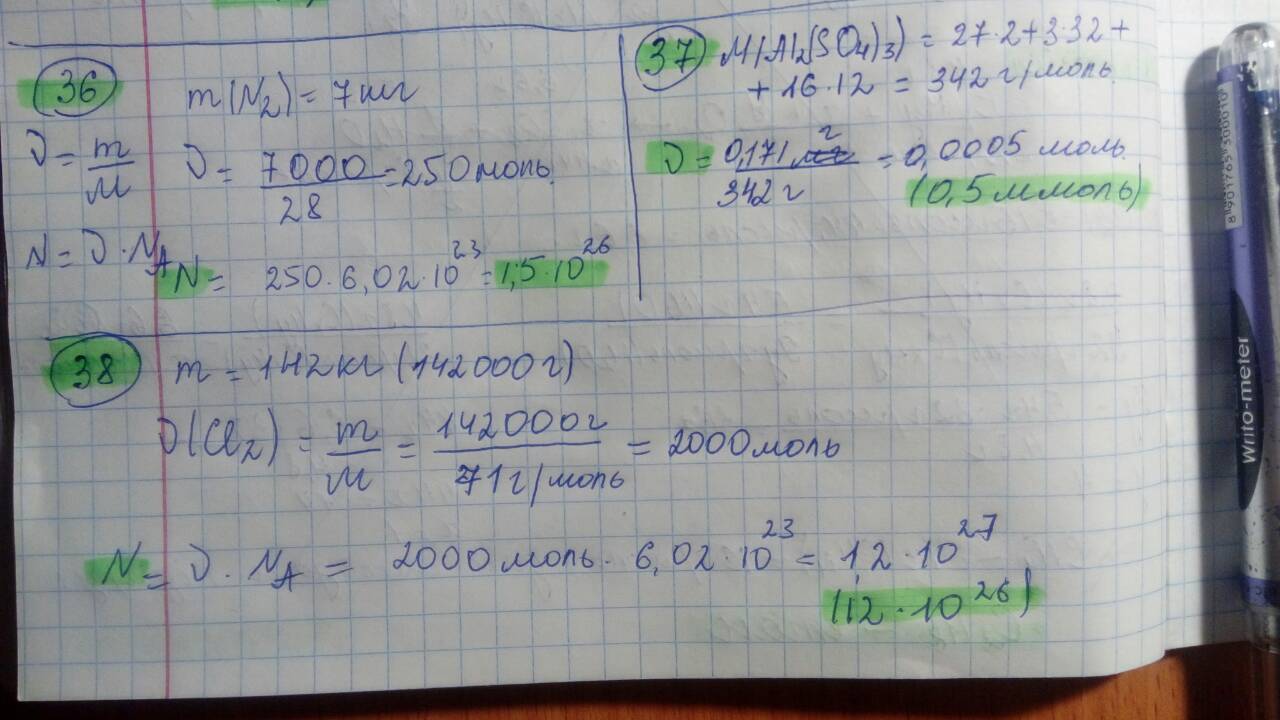 36 m(N₂) = 7 кг
ν = m/M ν = 7000/28 = 250 моль.
N = ν · N_A N = 250 · 6,02 · 10²³ = 1,5 · 10²⁶
37 M(Al₂(SO₄)₃) = 27·2+3·32+
+ 16·12 = 342 г/моль
ν = 0,171 г/342 г = 0,0005 моль.
(0,5 ммоль)
38 m = 142 кг (142000 г)
ν(Cl₂) = m/M = 142000 г/71 г/моль = 2000 моль
N = ν · N_A = 2000 моль · 6,02 · 10²³ = 1,2 · 10²⁷
(12 · 10²⁶)
Writo-meter
8 901765 300010